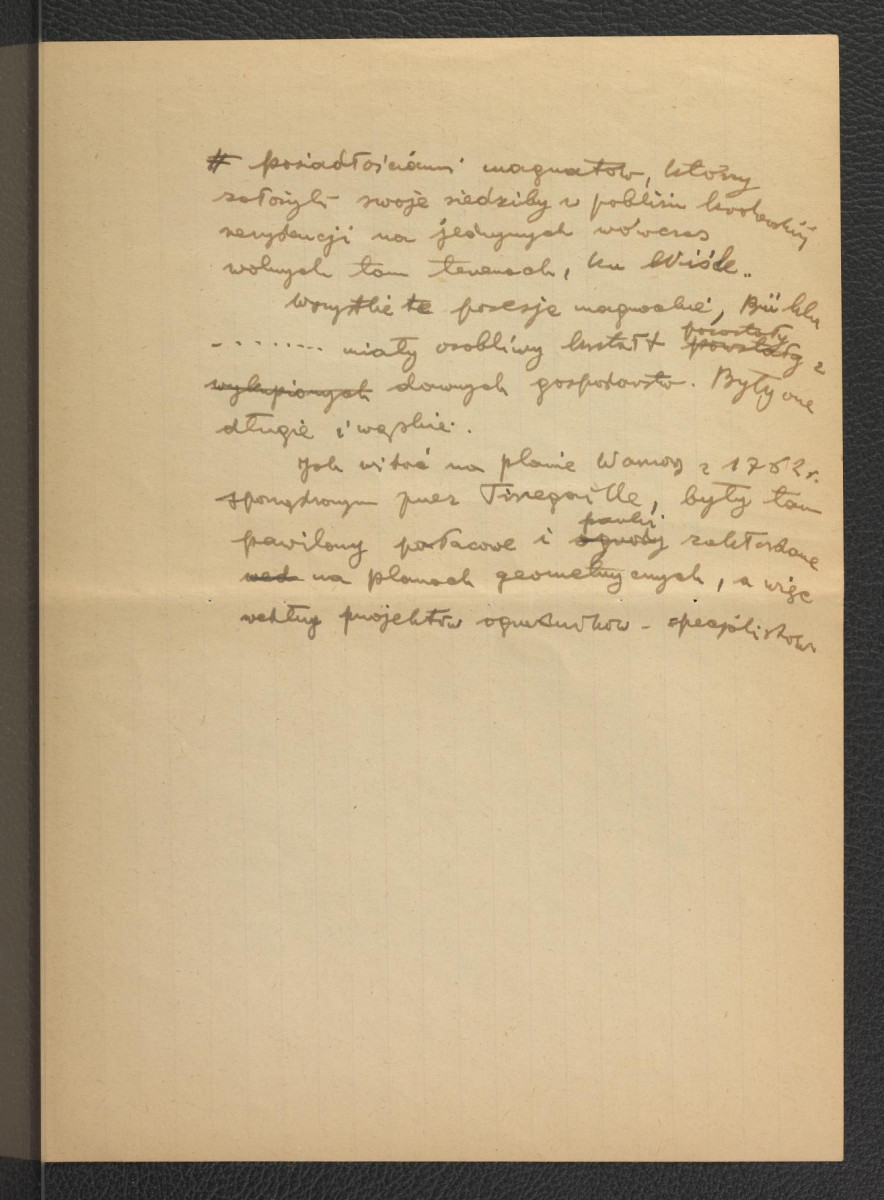 # posiadłościami magnatów, którzy
założyli swoje siedziby w pobliżu królewskiej
rezydencji na jedynych wówczas
wolnych tam terenach, ku Wiśle.
Wszystkie te posesje magnackie,
- . . . . . . . miały osobliwy kształt pozostały powstały z
wykupionych dawnych gospodarstw. Były one
długie i wąskie.
Jak widać na planie Warszawy z 1762 r.
sporządzonym przez Tirregaille, były tam
pawilony pałacowe i ogrody parki zakładane
wed na planach geometrycznych, a więc
według projektów ogrodników - specjalistów